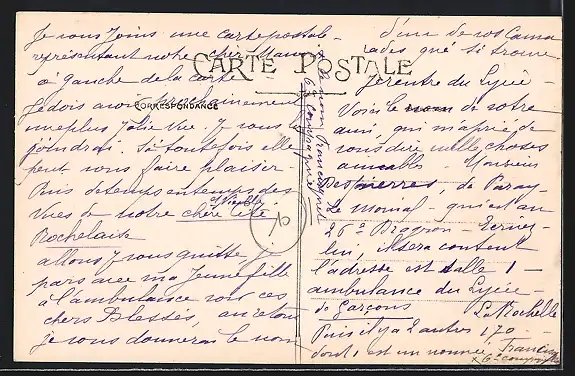 Je vous joins une carte postale
représentant notre cher
à gauche de la carte
CARTE POSTALE
CORRESPONDANCE
Je dois avoir prochainement
une plus jolie vue. Je vous la
joindrai. Si toutefois elle
peut vous faire plaisir -
Puis de temps en temps des
vues de notre chère cité
Rochelaise
allons je vous quitte, je
pars avec ma jeune fille
à l'ambulance voir ces
chers Blessés, au retour
je vous donnerai le nom
10
d'un de vos cama
rades qui se trouve
Je rentre du Lycée -
Voici le nom de votre
ami, qui m'a prié de
vous dire mille choses
aimables Monsieur
Despierres, de Paray-
le Monial - qui est au
26e Dragon -
lui, il sera content
l'adresse est salle 1 -
ambulance du Lycée -
de Garçons La Rochelle
Puis il y a 2 autres 170 -
dont 1 est un nommé
x 6e
x le nom
6e compagnie